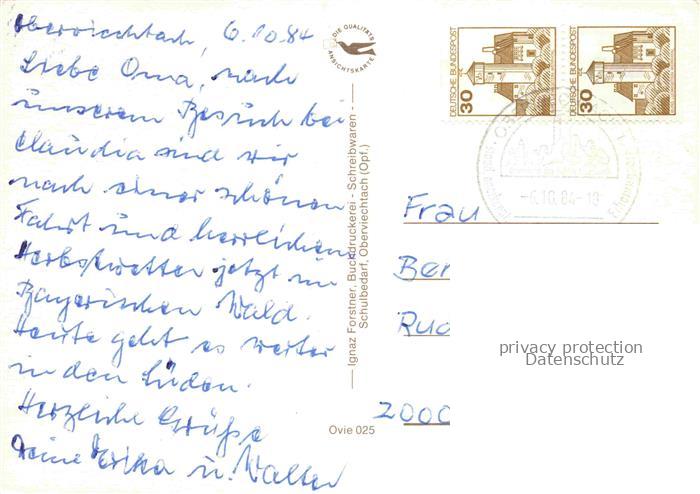 Oberviechtach, 6.10.84
Liebe Oma, nach
unserem Besuch bei
Claudia sind wir
nach einer schönen
Fahrt und herrlichem
Herbstwetter jetzt im
Bayerischen Wald.
Heute geht es weiter
in den Süden.
Herzliche Grüße
Deine Erika u. Walter
DIE QUALITÄTS
ANSICHTSKARTE
Ignaz Forstner, Buchdruckerei - Schreibwaren -
Schulbedarf, Oberviechtach (Opf.)
Ovie 025
DEUTSCHE BUNDESPOST
30
DEUTSCHE BUNDESPOST
30
-6.10.84-10
Frau
Ber
Rud
2000
privacy protection
Datenschutz